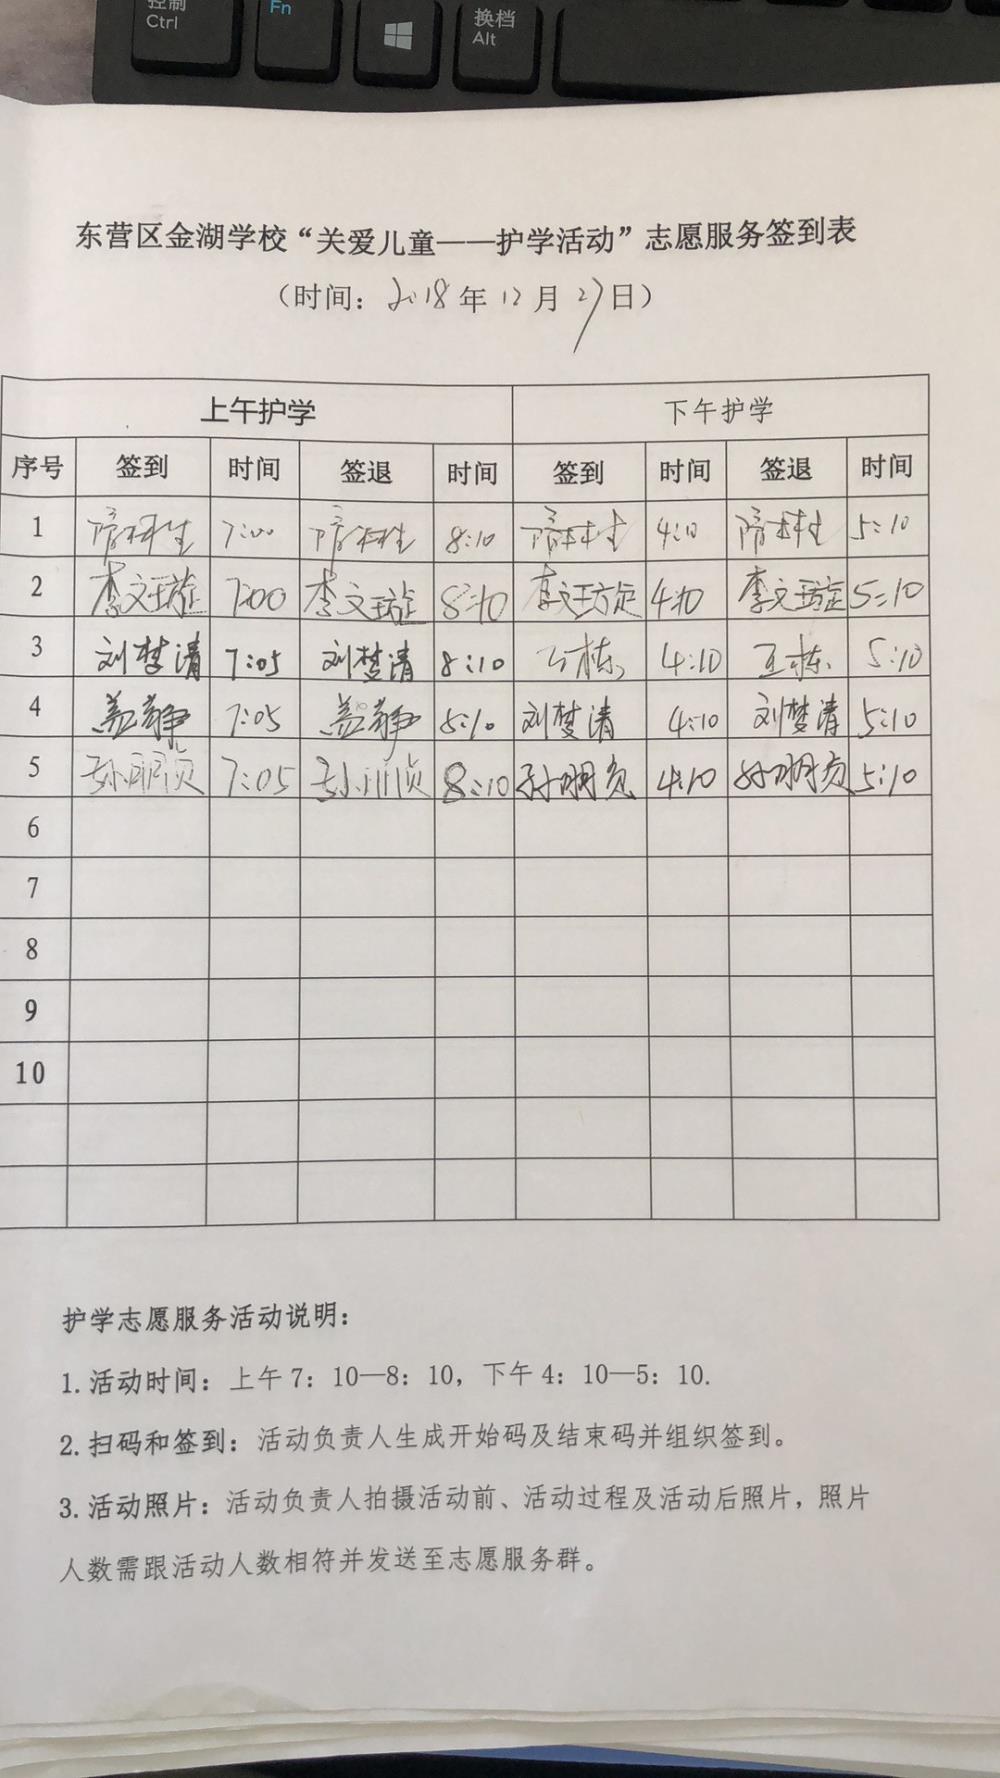 控制
Ctrl
Fn
换档
Alt
东营区金湖学校“关爱儿童——护学活动”志愿服务签到表
（时间：2018年12月27日）
上午护学 下午护学
序号 签到 时间 签退 时间 签到 时间 签退 时间
1 7:00 8:10 4:10 5:10
2 李文璇 7:00 李文璇 8:10 李文璇 4:10 李文璇 5:10
3 刘梦清 7:05 刘梦清 8:10 王栋 4:10 王栋 5:10
4 盖静 7:05 盖静 8:10 刘梦清 4:10 刘梦清 5:10
5 7:05 8:10 4:10 5:10
6
7
8
9
10
护学志愿服务活动说明：
1.活动时间：上午7：10—8：10，下午4：10—5：10.
2.扫码和签到：活动负责人生成开始码及结束码并组织签到。
3.活动照片：活动负责人拍摄活动前、活动过程及活动后照片，照片
人数需跟活动人数相符并发送至志愿服务群。